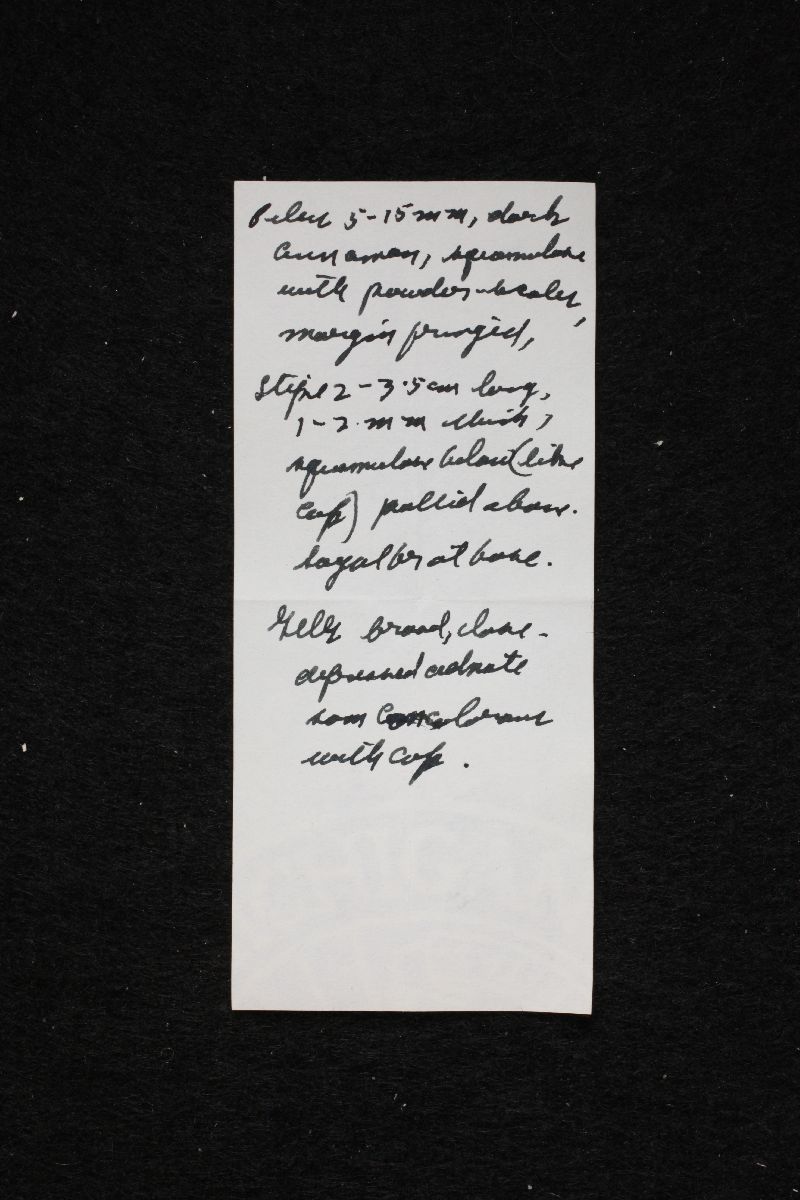 Pileus 5-15 mm, dark
cinnamon, squamulose
with powder-scales,
margin fringed,
Stipe 2-3.5 cm long,
1-2 mm thick,
squamulose below (like
cap) pallid above.
at base.
Gills broad, close -
depressed adnate
som concolorous
with cap.